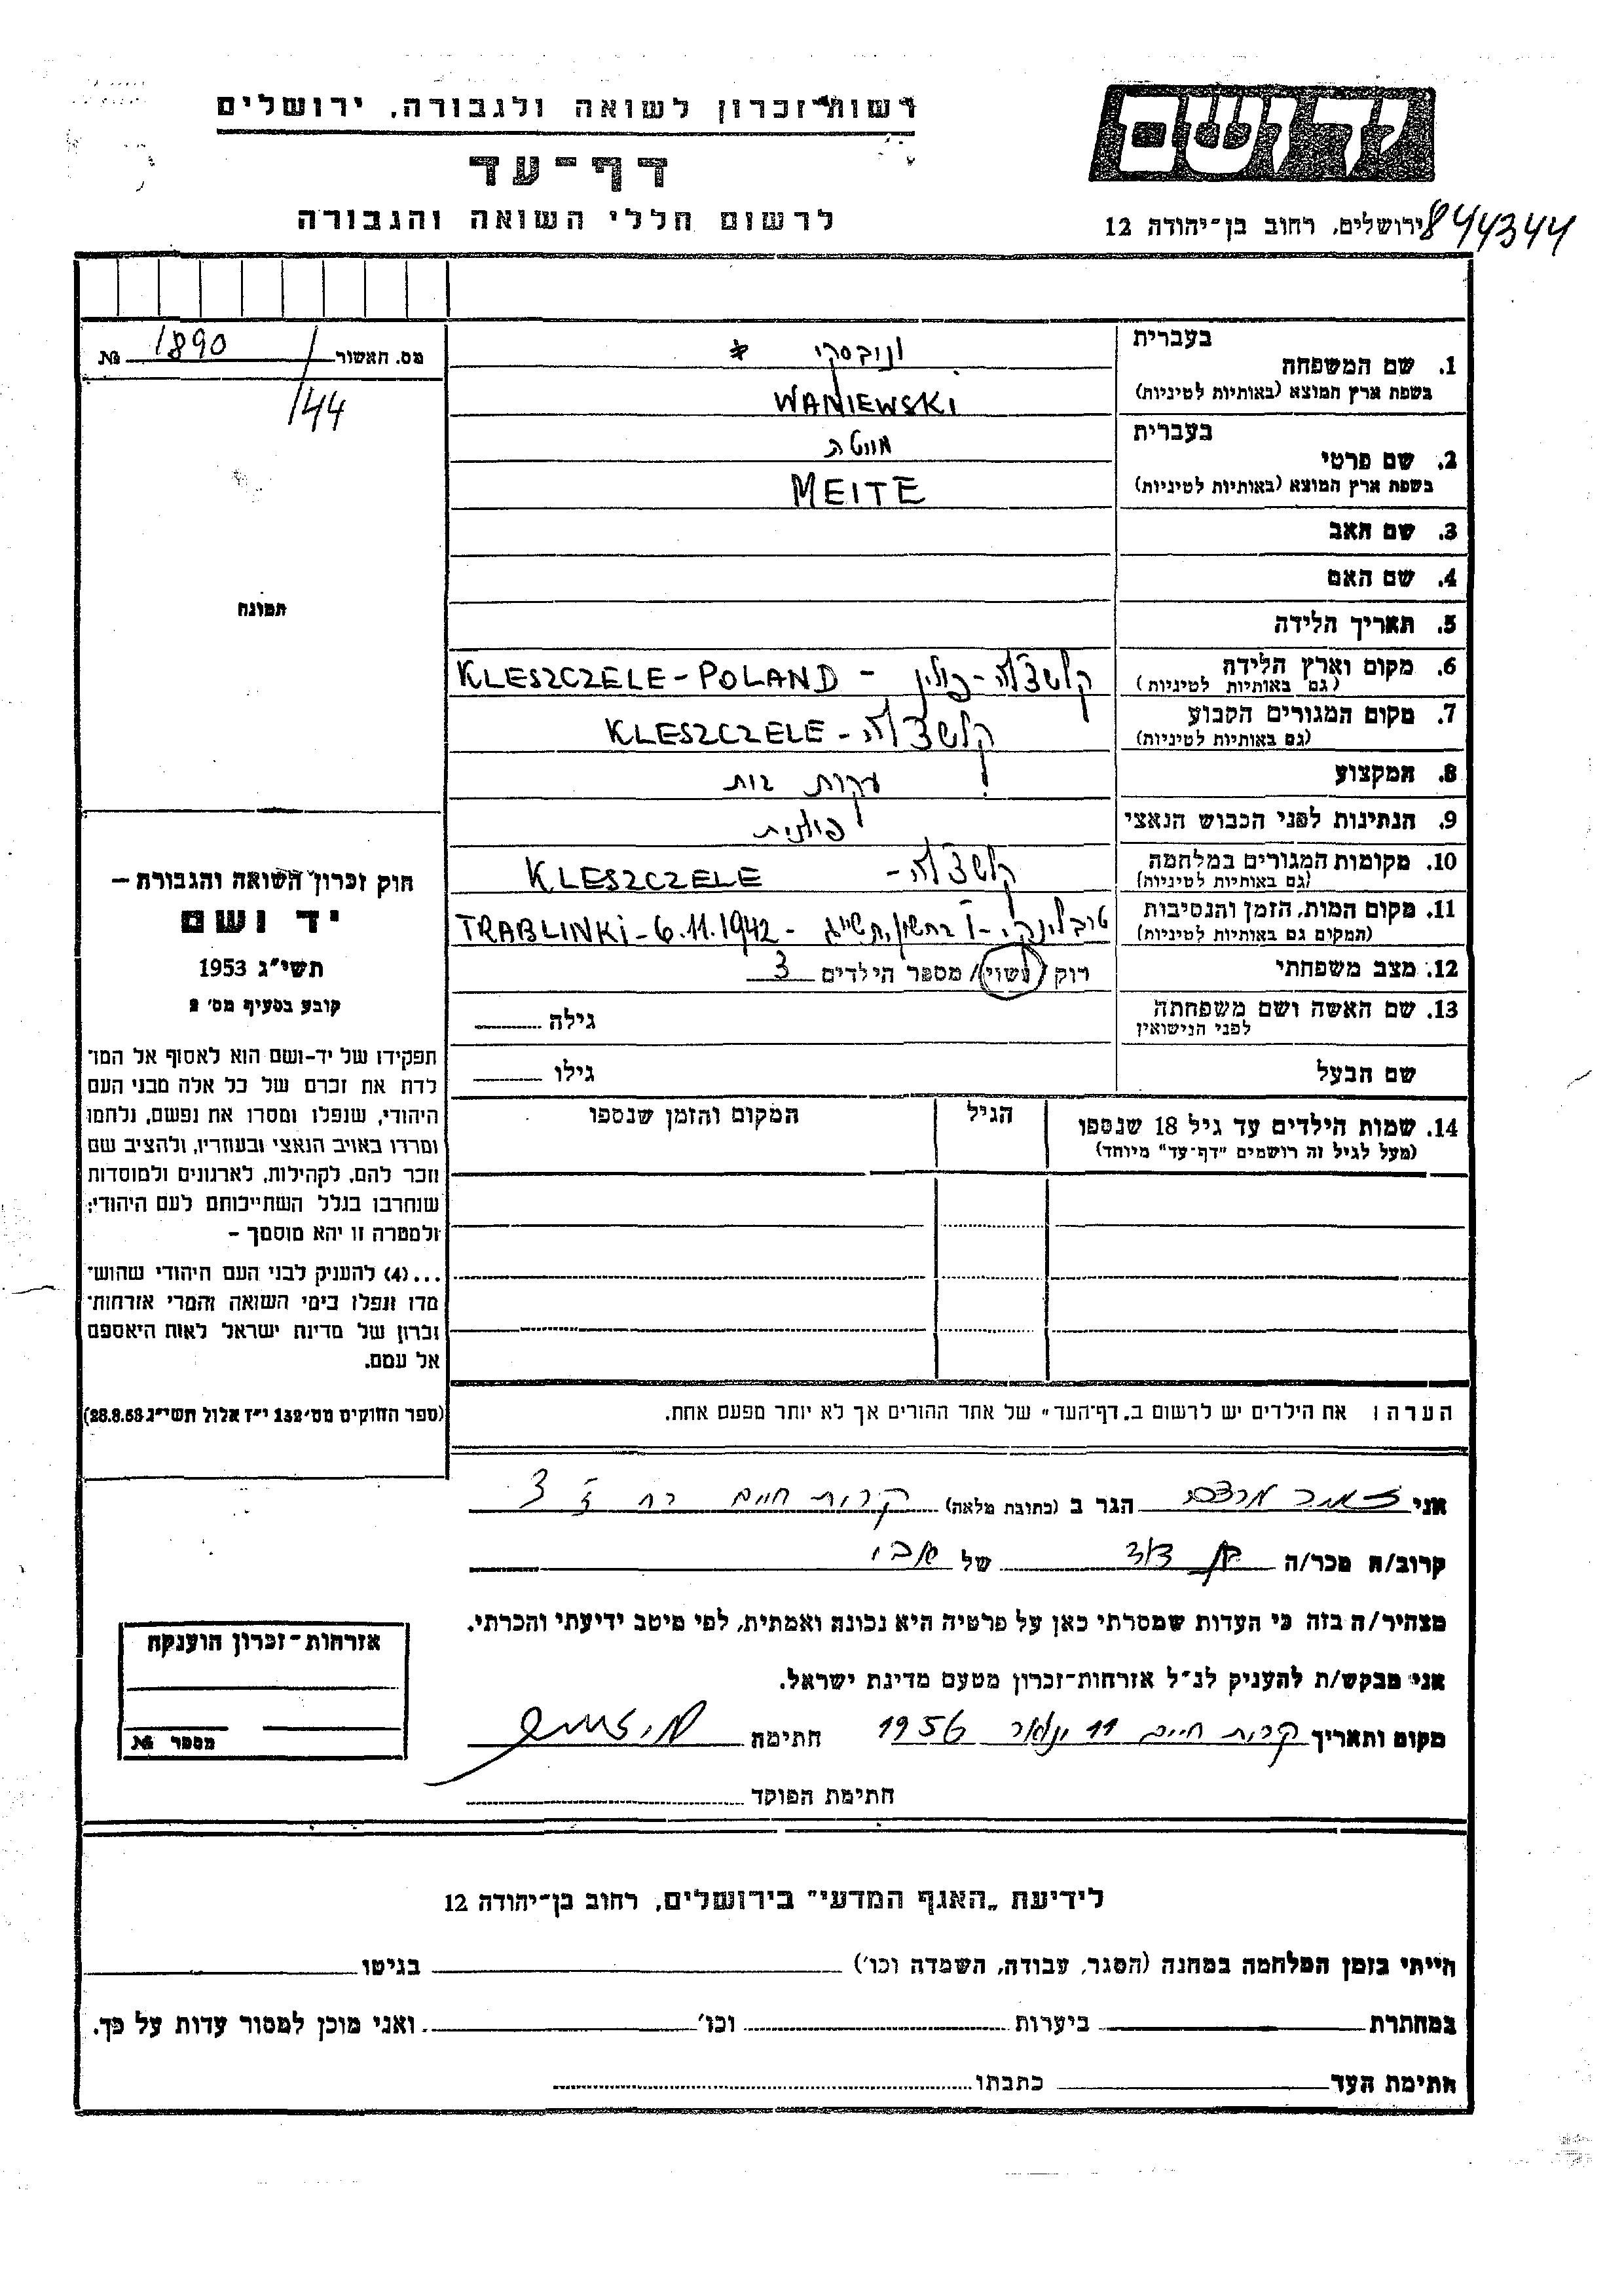 רשות־זכרון לשואה ולגבורה, ירושלים
דף־עד
לרשום חללי השואה והגבורה
יד ושם
ירושלים, רחוב בן־יהודה 12
844344
מס. האשור 1890 №
/144
תמונה
1. שם המשפחה
בעברית
ונובסקי *
בשפת ארץ המוצא (באותיות לטיניות) WANIEWSKI
2. שם פרטי
בעברית
מיטה
בשפת ארץ המוצא (באותיות לטיניות) MEITE
3. שם האב
4. שם האם
5. תאריך הלידה
6. מקום וארץ הלידה
(גם באותיות לטיניות) קלשצ'לה - פולין - KLESZCZELE - POLAND
7. מקום המגורים הקבוע
(גם באותיות לטיניות) קלשצ'לה - KLESZCZELE
8. המקצוע עקרת בית
9. הנתינות לפני הכבוש הנאצי פולנית
10. מקומות המגורים במלחמה
(גם באותיות לטיניות) קלשצ'לה - KLESZCZELE
11. מקום המות, הזמן והנסיבות
(המקום גם באותיות לטיניות) טרבלינקי - בחשון, תש"ג - TRABLINKI - 6.11.1942
12. מצב משפחתי רוק / נשוי / מספר הילדים 3
13. שם האשה ושם משפחתה
לפני הנישואין
גילה
שם הבעל גילו
14. שמות הילדים עד גיל 18 שנספו הגיל המקום והזמן שנספו
(מעל לגיל זה רושמים "דף־עד" מיוחד)
הערה: את הילדים יש לרשום ב„דף־העד" של אחד ההורים אך לא יותר מפעם אחת.
חוק זכרון השואה והגבורה –
יד ושם
תשי"ג 1953
קובע בסעיף מס' 2
תפקידו של יד־ושם הוא לאסוף אל המו־
לדת את זכרם של כל אלה מבני העם
היהודי, שנפלו ומסרו את נפשם, נלחמו
ומרדו באויב הנאצי ובעוזריו, ולהציב שם
וזכר להם, לקהילות, לארגונים ולמוסדות
שנחרבו בגלל השתייכותם לעם היהודי;
ולמטרה זו יהא מוסמך –
...(4) להעניק לבני העם היהודי שהוש־
מדו ונפלו בימי השואה והמרי אזרחות־
זכרון של מדינת ישראל לאות היאספם
אל עמם.
(ספר החוקים מס' 132 י"ז אלול תשי"ג 28.8.53)
אני מרדכי הגר ב (כתובת מלאה) קרית חיים רח 3
קרוב/ה מכר/ה בן דוד של אבי
מצהיר/ה בזה כי העדות שמסרתי כאן על פרטיה היא נכונה ואמתית, לפי מיטב ידיעתי והכרתי.
אני מבקש/ת להעניק לנ"ל אזרחות־זכרון מטעם מדינת ישראל.
מקום ותאריך קרית חיים 11 ינואר 1956 חתימה
חתימת הפוקד
אזרחות־זכרון הוענקה
מספר №
לידיעת „האגף המדעי" בירושלים, רחוב בן־יהודה 12
הייתי בזמן המלחמה במחנה (הסגר, עבודה, השמדה וכו') בגיטו
במחתרת ביערות וכו' ואני מוכן למסור עדות על כך.
חתימת העד כתבתו